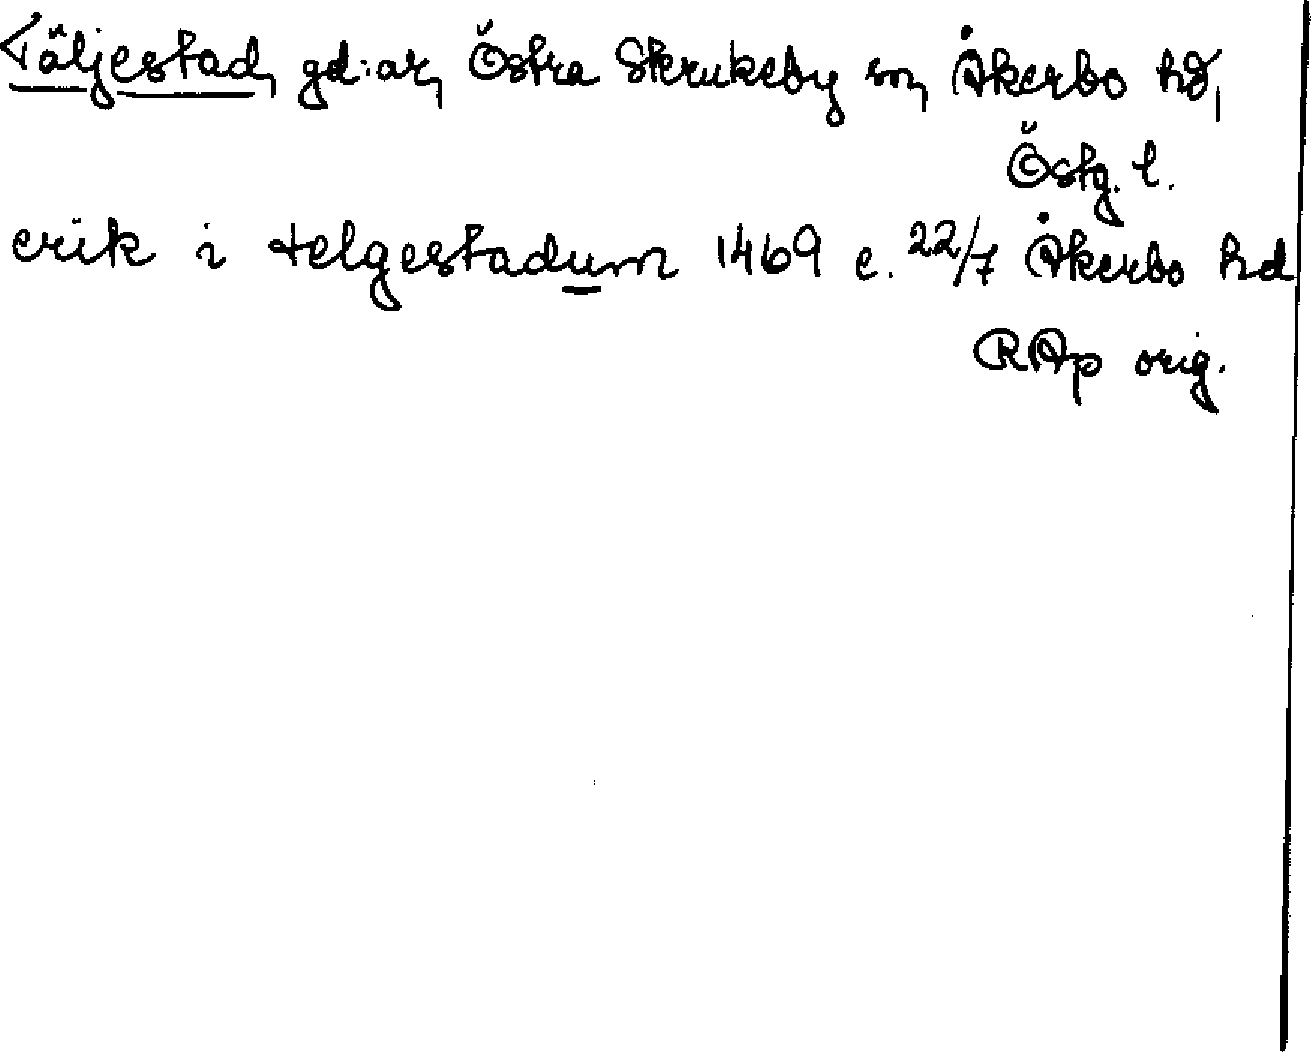 Täljestad, gd:ar, Östra Skrukeby sn, Åkerbo hd,
Östg. l.
erik i telgestadum 1469 e. 22/7 Åkerbo hd
RAp orig.